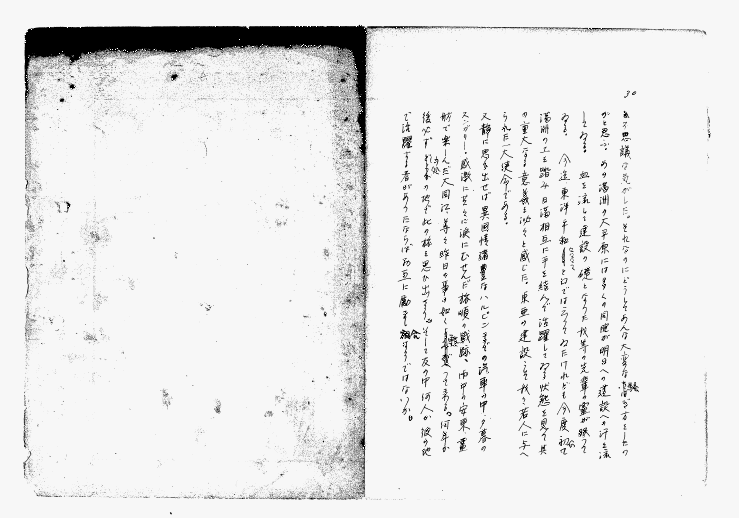 30
ある不思議な気がした。それなのにどうしてあんな大変な騒ぎをしたの
かと思ふ。あの満洲の大平原には多くの同胞が明日への建設への汗を流
してゐる。血を流して建設の礎となった我等の先輩の霊が眠って
ゐる。今迄東洋平和と口では云ってゐたけれども今度初めて
満洲の土を踏み日満相互に手を結んで活躍してゐる状態を見て其
の重大なる意義を沁々と感じた。東亜の建設こそ我々若人に与へ
られた一大使命である。
又静に思ひ出せば異国情緒豊なハルピン、汽車の中、夕暮の
スンガリー、感激に共々に涙にむせんだ旅順の戦跡、雨中の安東、
船で楽しんだ大同江等々昨日の事の如く変ってゐる。何年か
後必ず の地で此の旅を思ひ出すだらう。そして友の中何人か彼の地
で活躍する者があったならばお互に励まし合はうではないか。